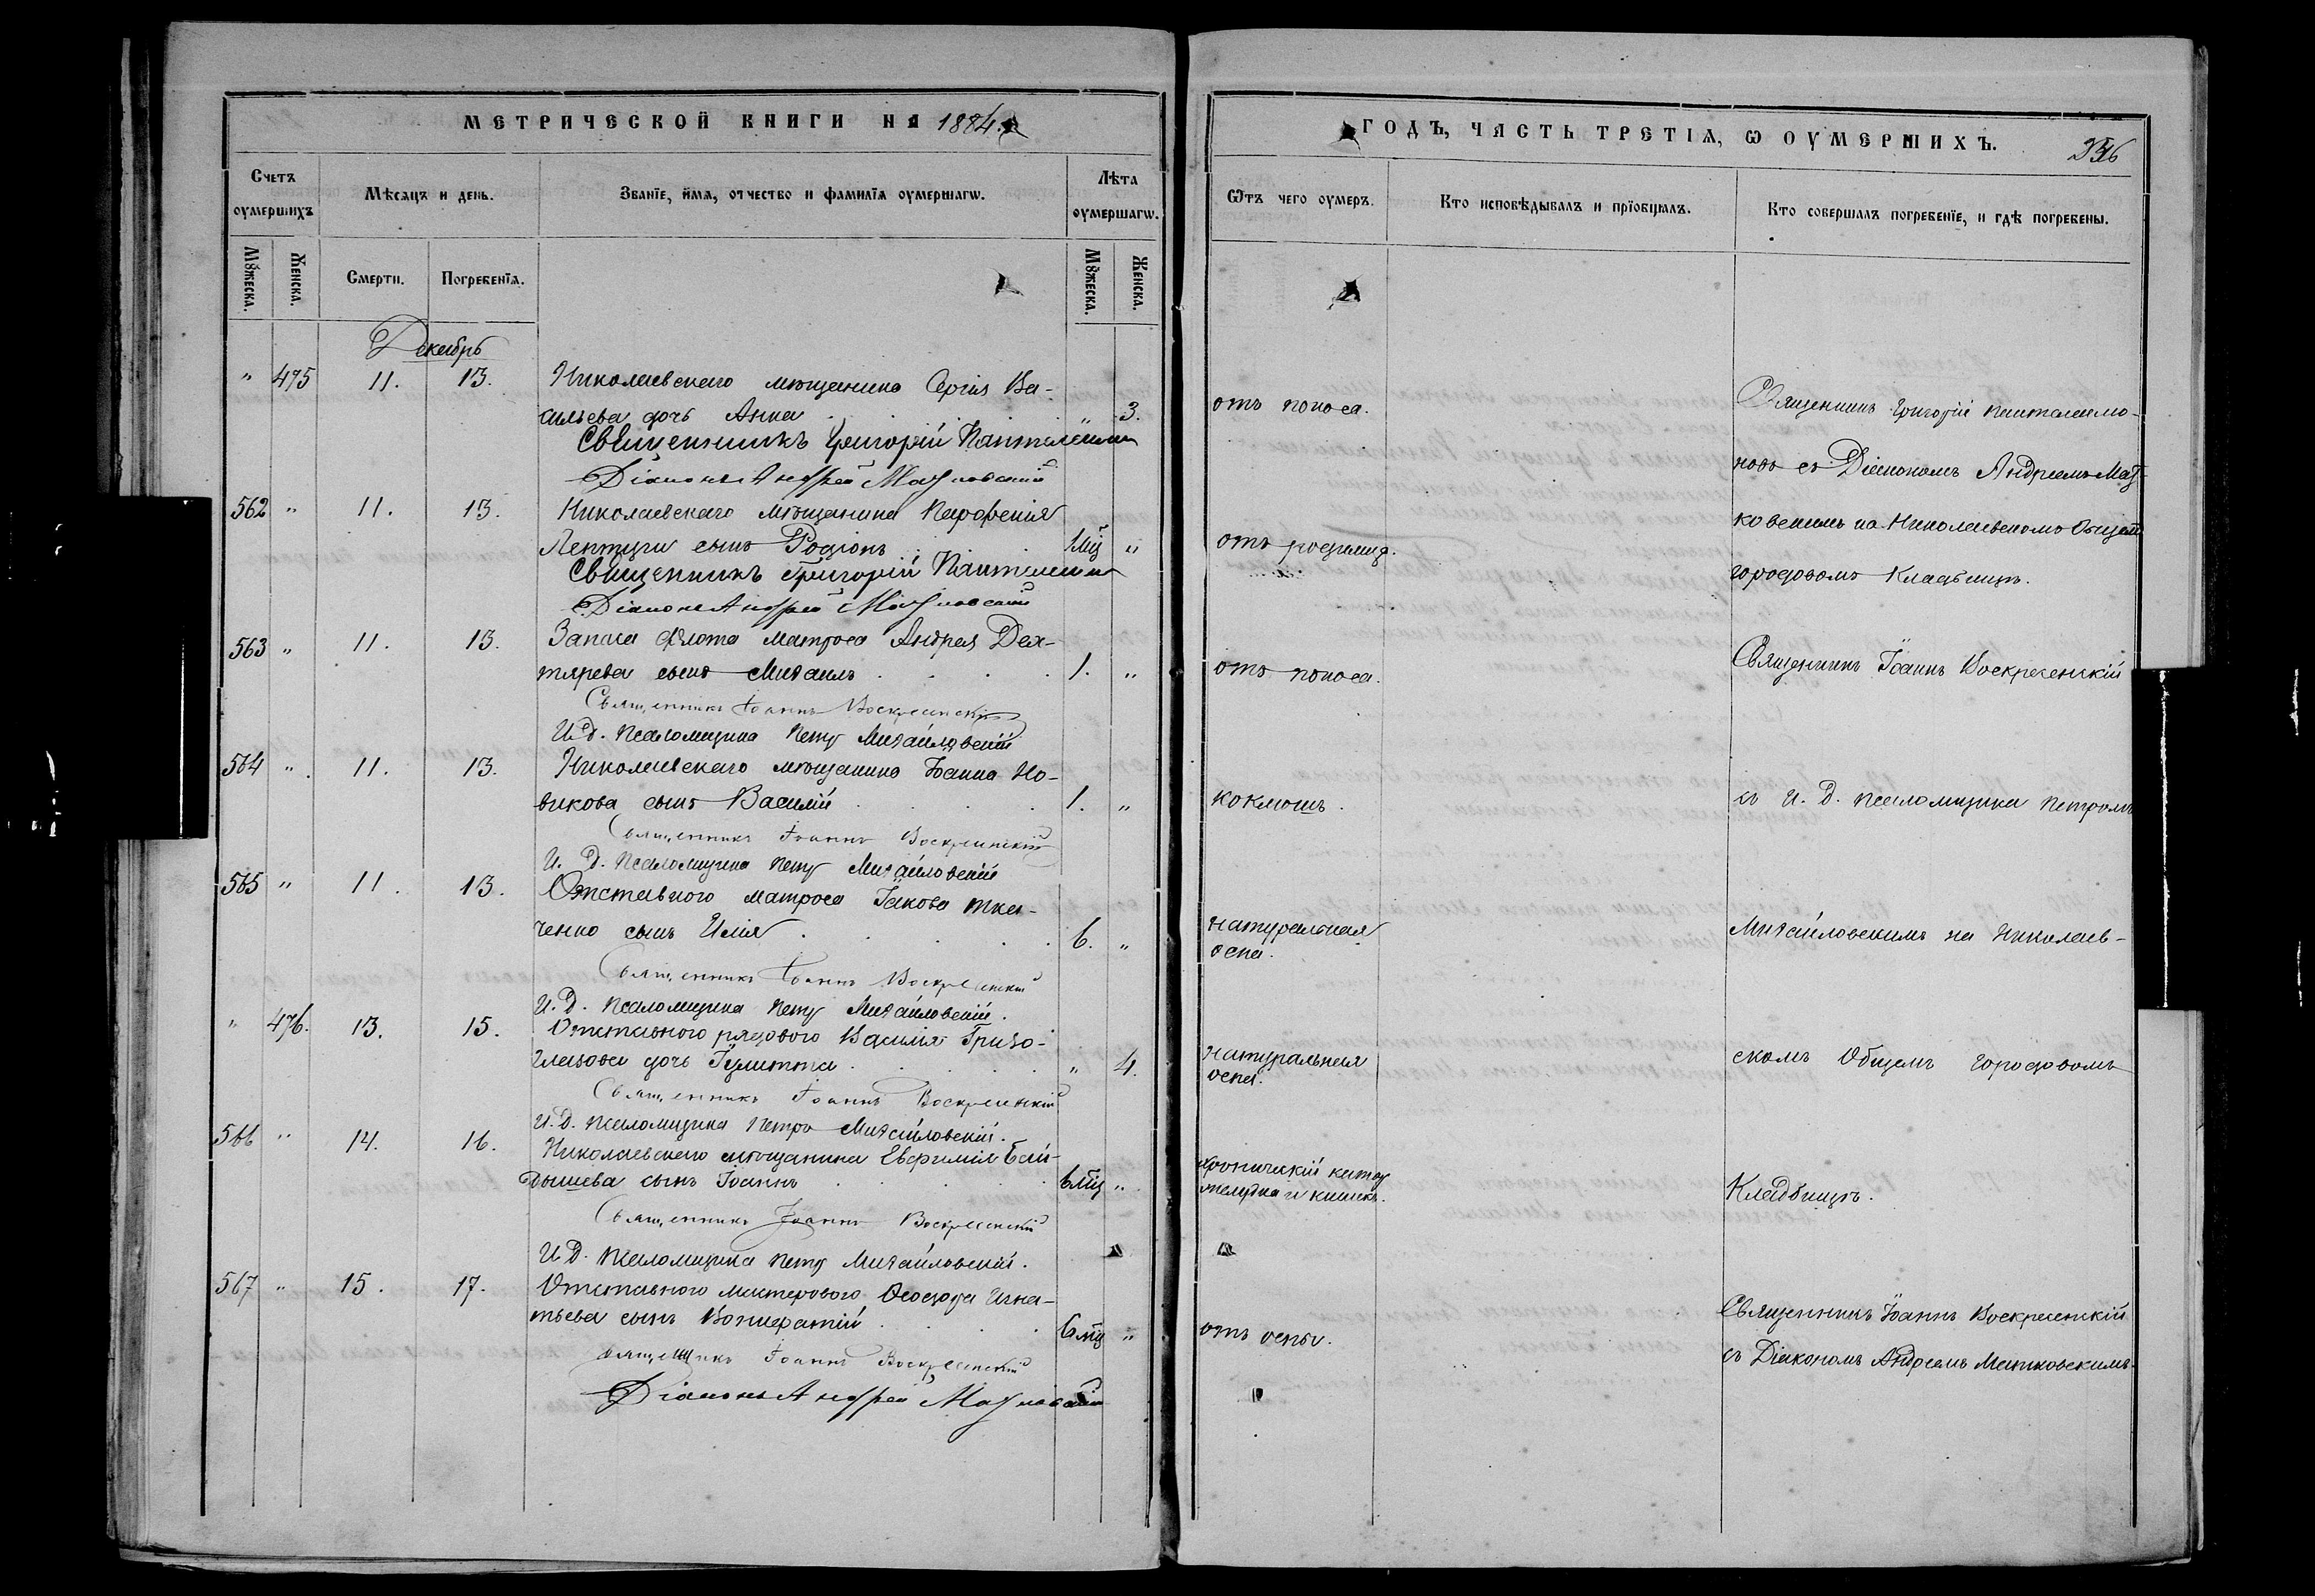 МЕТРИЧЕСКОЙ КНИГИ НА 1884.
Счетъ оумершихъ
Мѣсяцъ и день.
Званїе, и҆мя, отчество и фамилїя оумершагѡ.
Лѣта оумершагѡ.
Мꙋжеска.
Женска.
Смерти.
Погребенїя.
Мꙋжеска.
Женска.
Декабрь
" 475 11. 13. Николаевскаго мѣщанина Сергія Ва-
сильева дочь Анна . . . " 3.
Священникъ Григорій
Діаконъ Андрей
562 " 11. 13. Николаевскаго мѣщанина Парфенія
сынъ Родіонъ . . 1 мц "
Священникъ Григорій
Діаконъ Андрей
563 " 11. 13. Запаса флота матроса Андрея Дех-
тярева сынъ Михаилъ . . . . 1. "
Священникъ Іоаннъ Воскресенскій
И. д. псаломщика Петръ Михайловскій
564 " 11. 13. Николаевскаго мѣщанина Іоанна Но-
викова сынъ Василій . . . . 1. "
Священникъ Іоаннъ Воскресенскій
И. д. псаломщика Петръ Михайловскій
565 " 11. 13. Отставного матроса Іакова Тка-
ченко сынъ Илія . . . . . 6. "
Священникъ Іоаннъ Воскресенскій
И. д. псаломщика Петръ Михайловскій.
" 476. 13. 15. Отставного рядового Василія Гризо-
глазова дочь Іулитта . . . . " 4.
Священникъ Іоаннъ Воскресенскій
И. д. псаломщика Петръ Михайловскій.
566 " 14. 16. Николаевскаго мѣщанина Евфимія Бай-
дышева сынъ Іоаннъ . . . . 6 мц "
Священникъ Іоаннъ Воскресенскій
И. д. псаломщика Петръ Михайловскій.
567 " 15. 17. Отставного мастерового Ѳеодора Игна-
тьева сынъ Вонифатій . . . . 6 мц "
Священникъ Іоаннъ Воскресенскій
Діаконъ Андрей
ГОДЪ, ЧАСТЬ ТРЕТІЯ, Ѡ ОУМЕРШИХЪ.
Ѿтъ чего оумеръ.
Кто исповѣдывалъ и прїобщалъ.
Кто совершалъ погребенїе, и гдѣ погребены.
отъ поноса.
Священникъ Григорій Панталеимо-
новъ съ Діакономъ Андреемъ Мат-
ковскимъ на Николаевскомъ Общемъ
отъ родимца.
городовомъ Кладбищѣ.
отъ поноса.
Священникъ Іоаннъ Воскресенскій
коклюшъ.
съ И. д. псаломщика Петромъ
натуральная
оспа.
Михайловскимъ на Николаев-
натуральная
оспа.
скомъ Общемъ городовомъ
хроническій катар
желудка и кишекъ.
Кладбищѣ.
отъ оспы.
Священникъ Іоаннъ Воскресенскій
съ Діакономъ Андреемъ Матковскимъ.